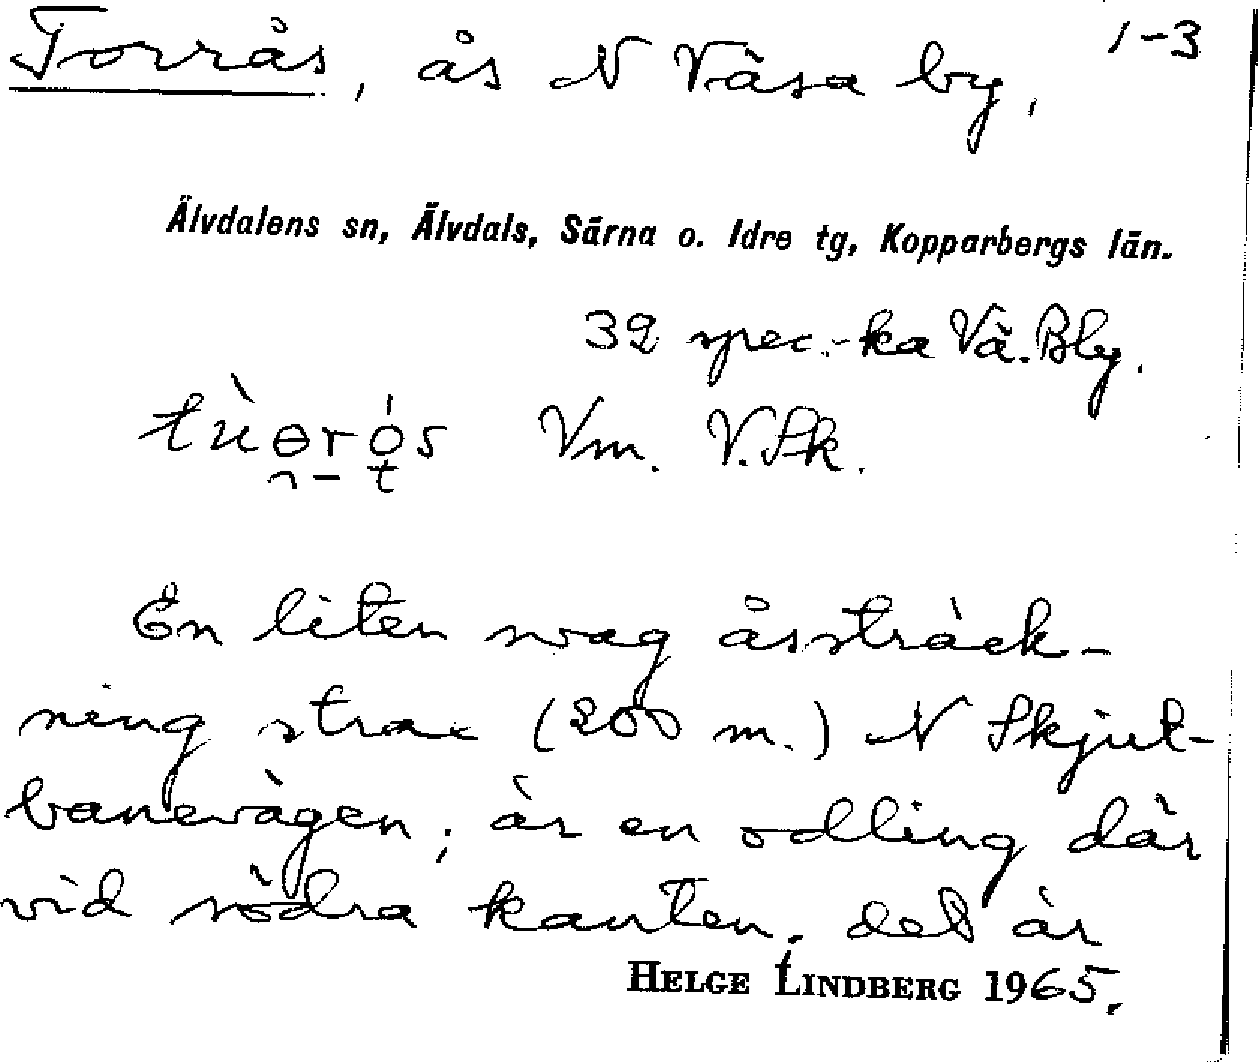 Torrås, ås N Väsa by, 1-3
Älvdalens sn, Älvdals, Särna o. Idre tg, Kopparbergs län.
32 spec.-ka Vä. Bly.
Vm. V.Sk.
En liten svag åssträck-
ning strax (200 m.) N Skjut-
banevägen; är en odling där
vid södra kanten. det är
HELGE LINDBERG 1965.